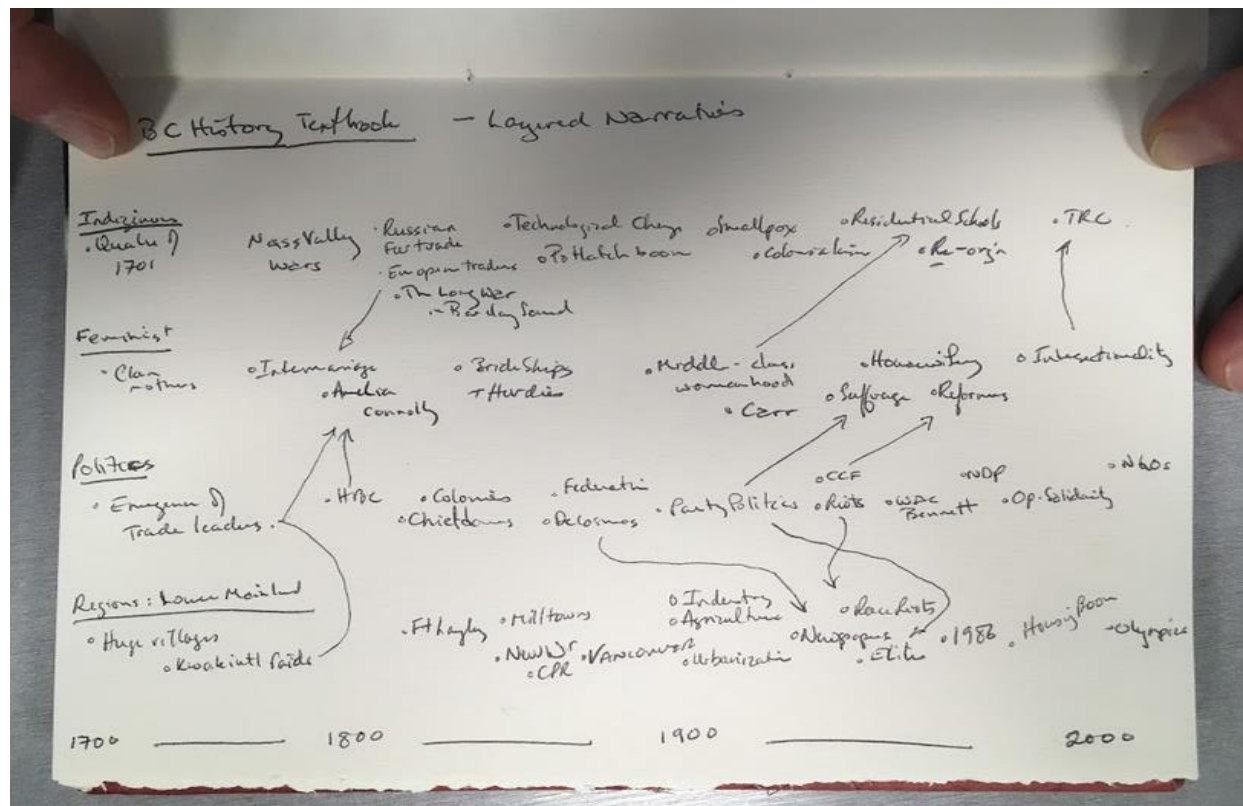 BC History Textbook - Layered Narratives
Indigenous
• Quake of
1701
Nass Valley
Wars
• Russian
Fur trade
• European traders
• The Long War
- Barclay Sound
• Technological Change
• Potlatch boom
Smallpox
• Colonialism
• Residential Schools
• Re-orgn
• TRC
Feminist
• Clan
mothers
• Intermarriage
• Amelia
Connolly
• Brideships
+ Hurdies
• Middle-class
womanhood
• Carr
• Housewifery
• Suffrage
• Reformers
• Intersectionality
Politics
• Emergence of
Trade leaders
• HBC
• Colonies
• Chiefdoms
• Federation
• DeCosmos
• Party Politics
• CCF
• Riots
• WAC
Bennett
• NDP
• Op. Solidarity
• NGOs
Regions: Lower Mainland
• Huge villages
• Kwakiutl Raids
• Ft Langley
• Milltowns
• New W
• CPR
• VANCOUVER
• Industry
• Agriculture
• Urbanization
• Newspapers
• Race Riots
• Elite
• 1986
• Housing Boom
• Olympics
1700 1800 1900 2000